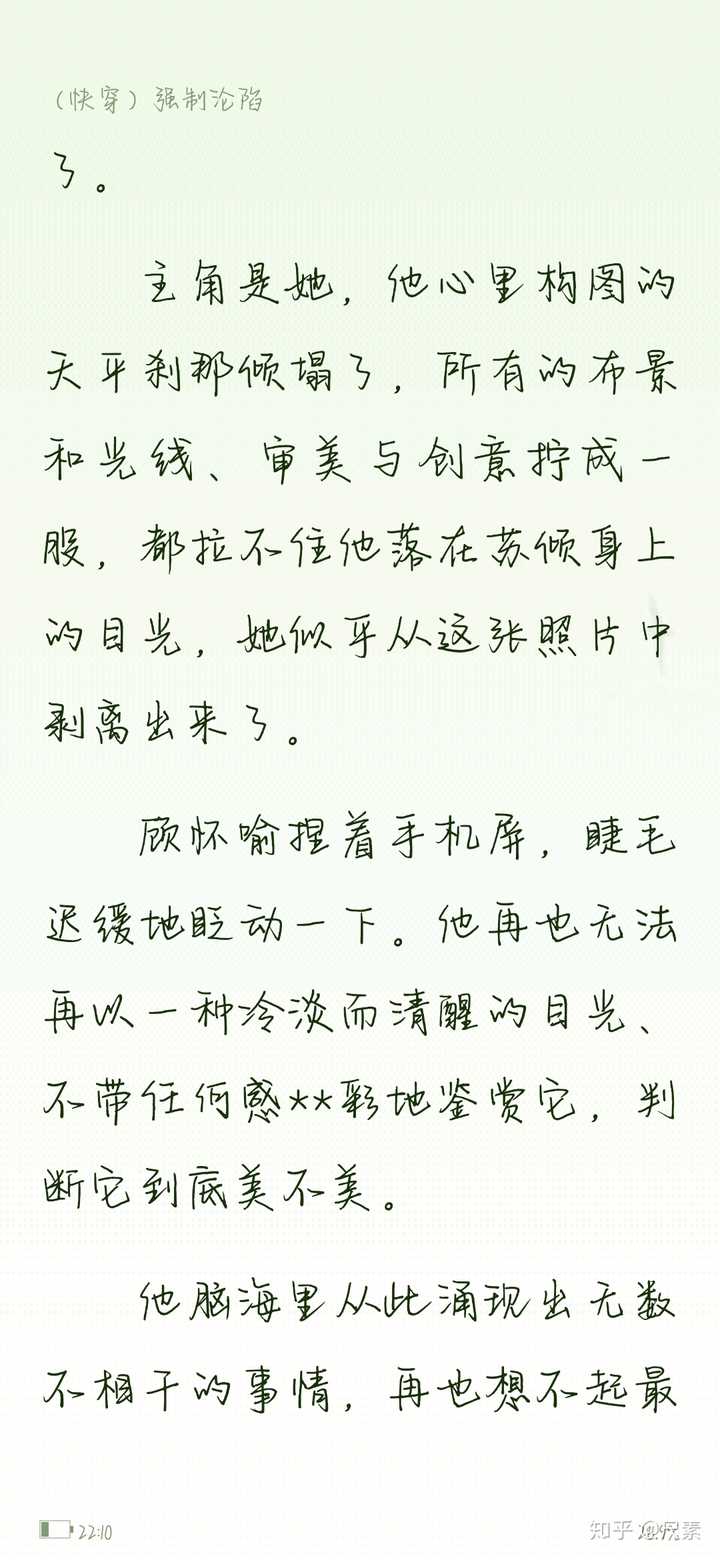 （快穿）强制沦陷
了。
主角是她，他心里构图的
天平刹那倾塌了，所有的布景
和光线、审美与创意拧成一
股，都拉不住他落在苏倾身上
的目光，她似乎从这张照片中
剥离出来了。
顾怀喻捏着手机屏，睫毛
迟缓地眨动一下。他再也无法
再以一种冷淡而清醒的目光、
不带任何感**彩地鉴赏它，判
断它到底美不美。
他脑海里从此涌现出无数
不相干的事情，再也想不起最
22:10
知乎